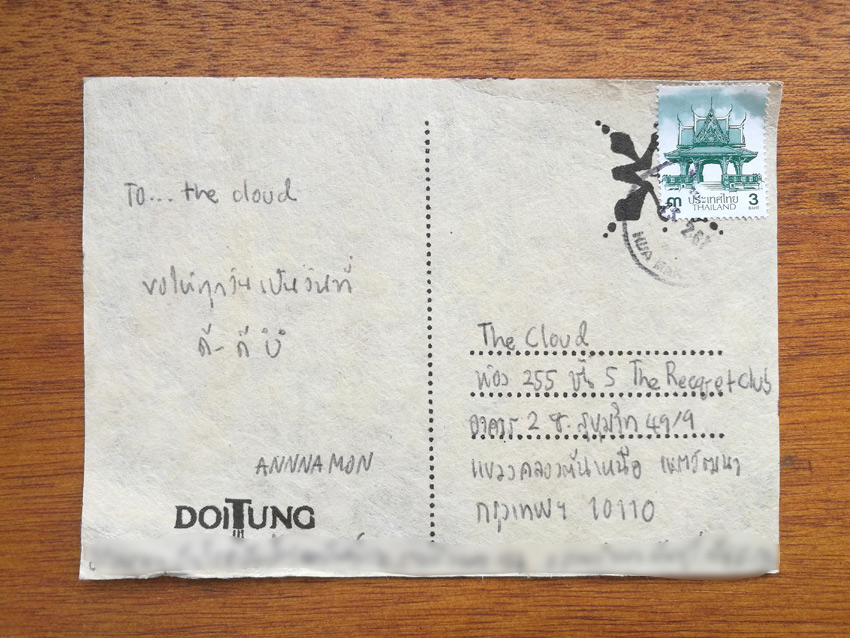 To... the cloud
ขอให้ทุกวันเป็นวันที่
ดี-ดี
ANNNAMON
DOITUNG
๓ ประเทศไทย 3
THAILAND BAHT
HUA
The Cloud
ห้อง 255 ชั้น 5 The Recgret club
อาคาร 2 ซ. สุขุมวิท 49/9
แขวงคลองตันเหนือ เขตวัฒนา
กรุงเทพฯ 10110